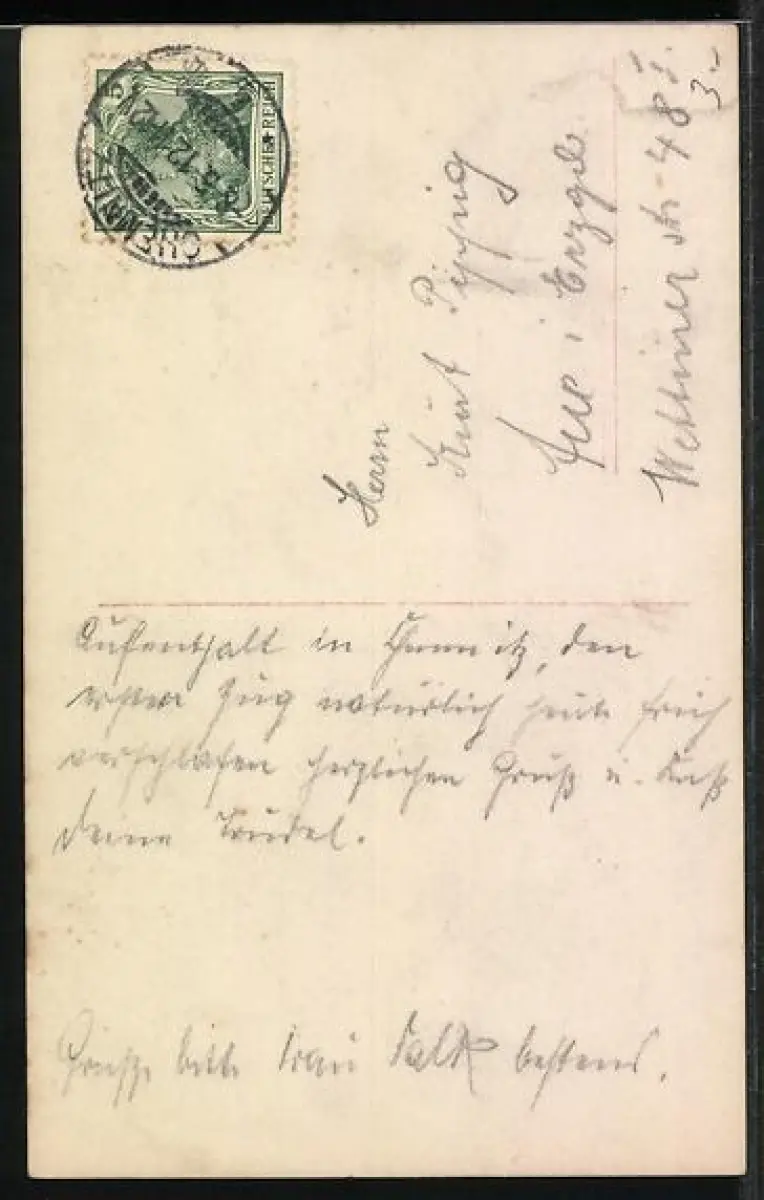 DEUTSCHES REICH
CHEMNITZ
5.12
Herrn
Kurt
Aue i. Erzgeb.
Wettiner str. 48 I.
3.-
Aufenthalt in Chemnitz, den
ersten Zug natürlich heute früh
verschlafen herzlichen Gruß u. Kuß
deine Trudel.
Grüße bitte Frau Falk bestens.